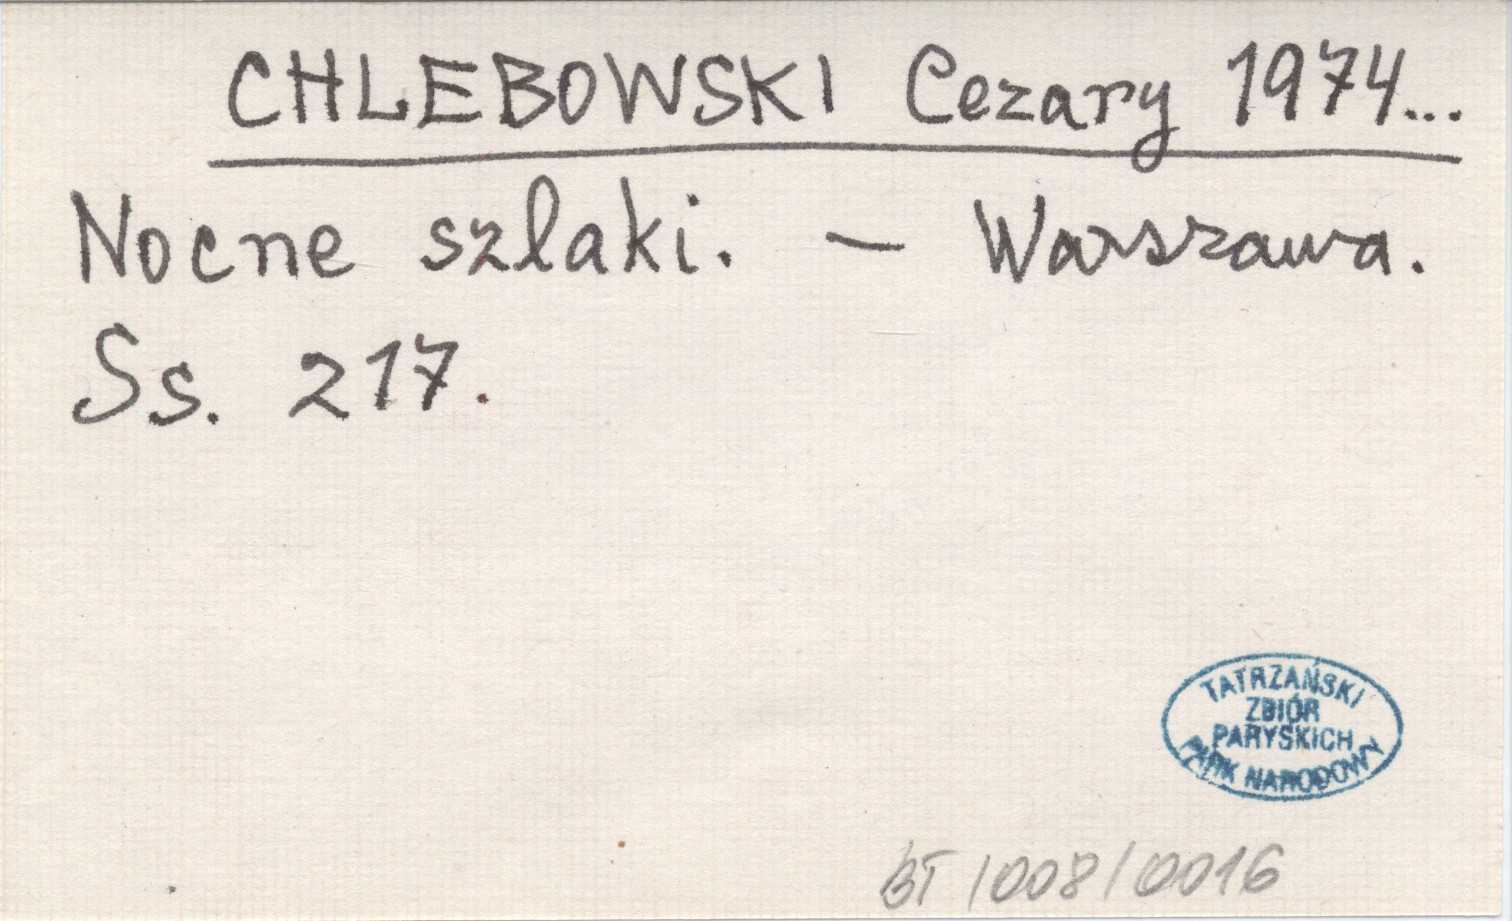 CHLEBOWSKI Cezary 1974...
Nocne szlaki. — Warszawa.
Ss. 217.
TATRZAŃSKI
ZBIÓR
PARYSKICH
PARK NARODOWY
BT/008/0016